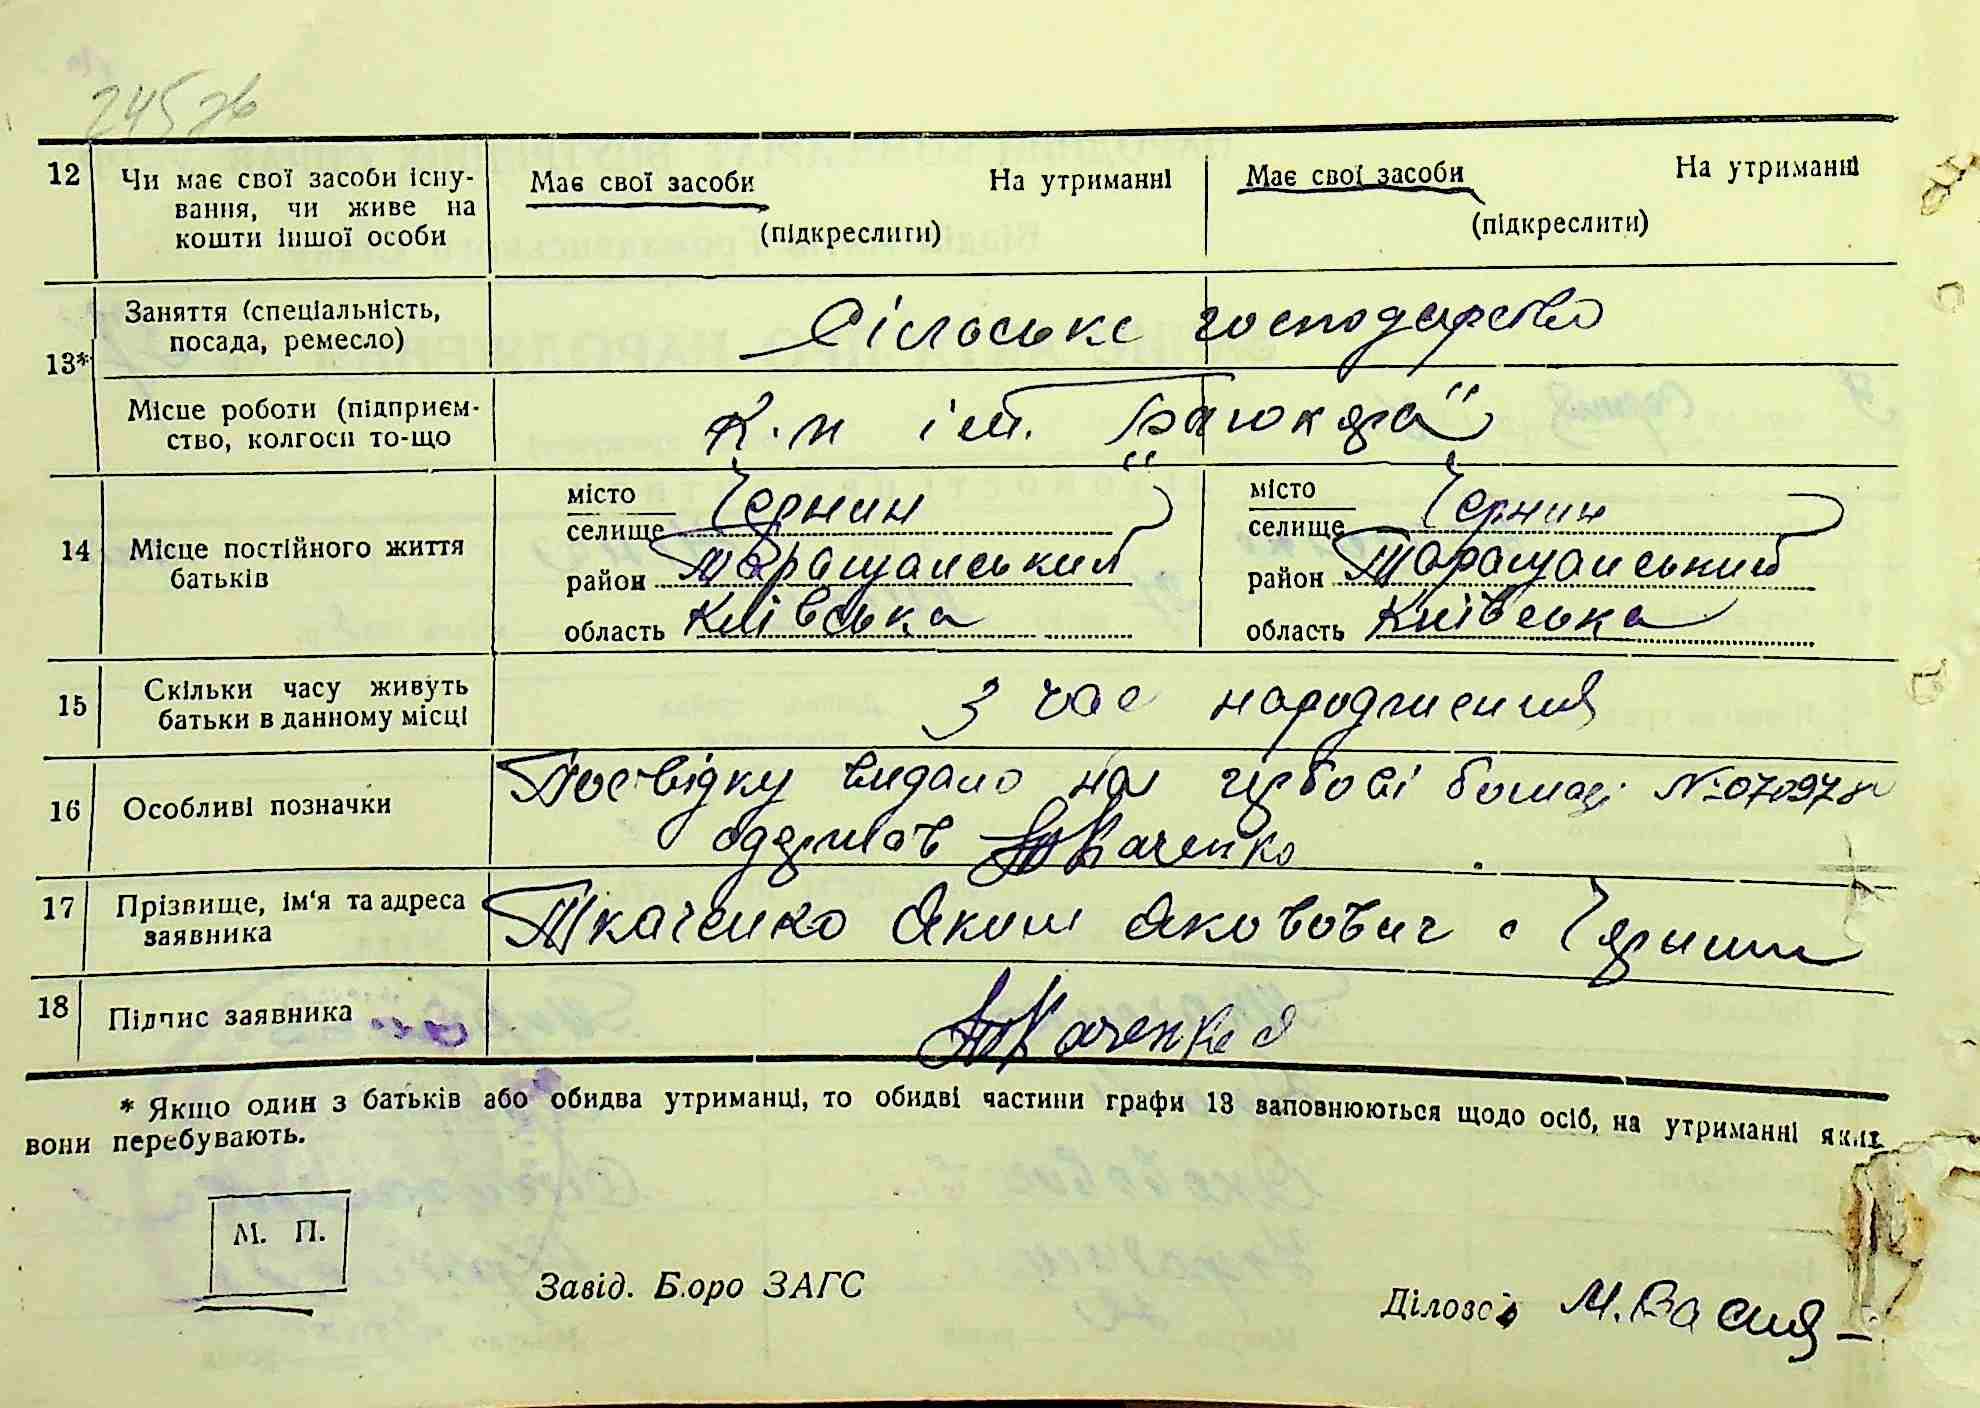 245 зв
12 Чи має свої засоби існу- Має свої засоби На утриманні Має свої засоби На утриманні
вання, чи живе на
кошти іншої особи (підкреслити) (підкреслити)
13* Заняття (спеціальність,
посада, ремесло) Сільське господарство
Місце роботи (підприєм-
ство, колгосп то-що К.п ім.
14 Місце постійного життя
батьків
місто
селище Чернин
район Таращанський
область Київська
місто
селище Чернин
район Таращанський
область Київська
15 Скільки часу живуть
батьки в данному місці З час народження
16 Особливі позначки Посвідку видано на гербові бомазі №
одержав Ткаченко
17 Прізвище, ім'я та адреса
заявника Ткаченко Яким Яковович с
18 Підпис заявника Ткаченко Я
* Якщо один з батьків або обидва утриманці, то обидві частини графи 13 заповнюються щодо осіб, на утриманні яких
вони перебувають.
М. П.
Завід. Бюро ЗАГС
Діловод М.